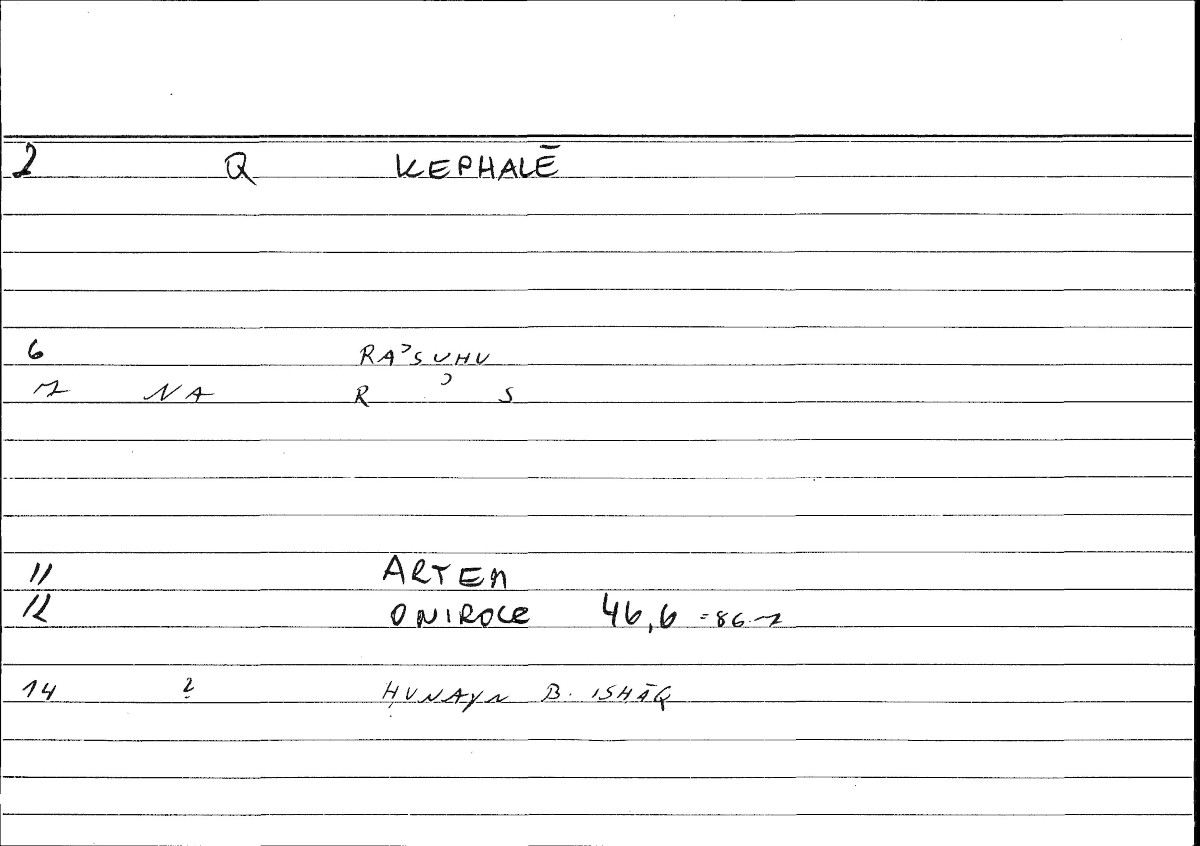 2 Q KEPHALĒ
6 RAʾSUHU
7 NA R ʾ S
11 ARTEM
12 ONIROCR 46,6 =86.7
14 2 ḤUNAYN B. ISHĀQ